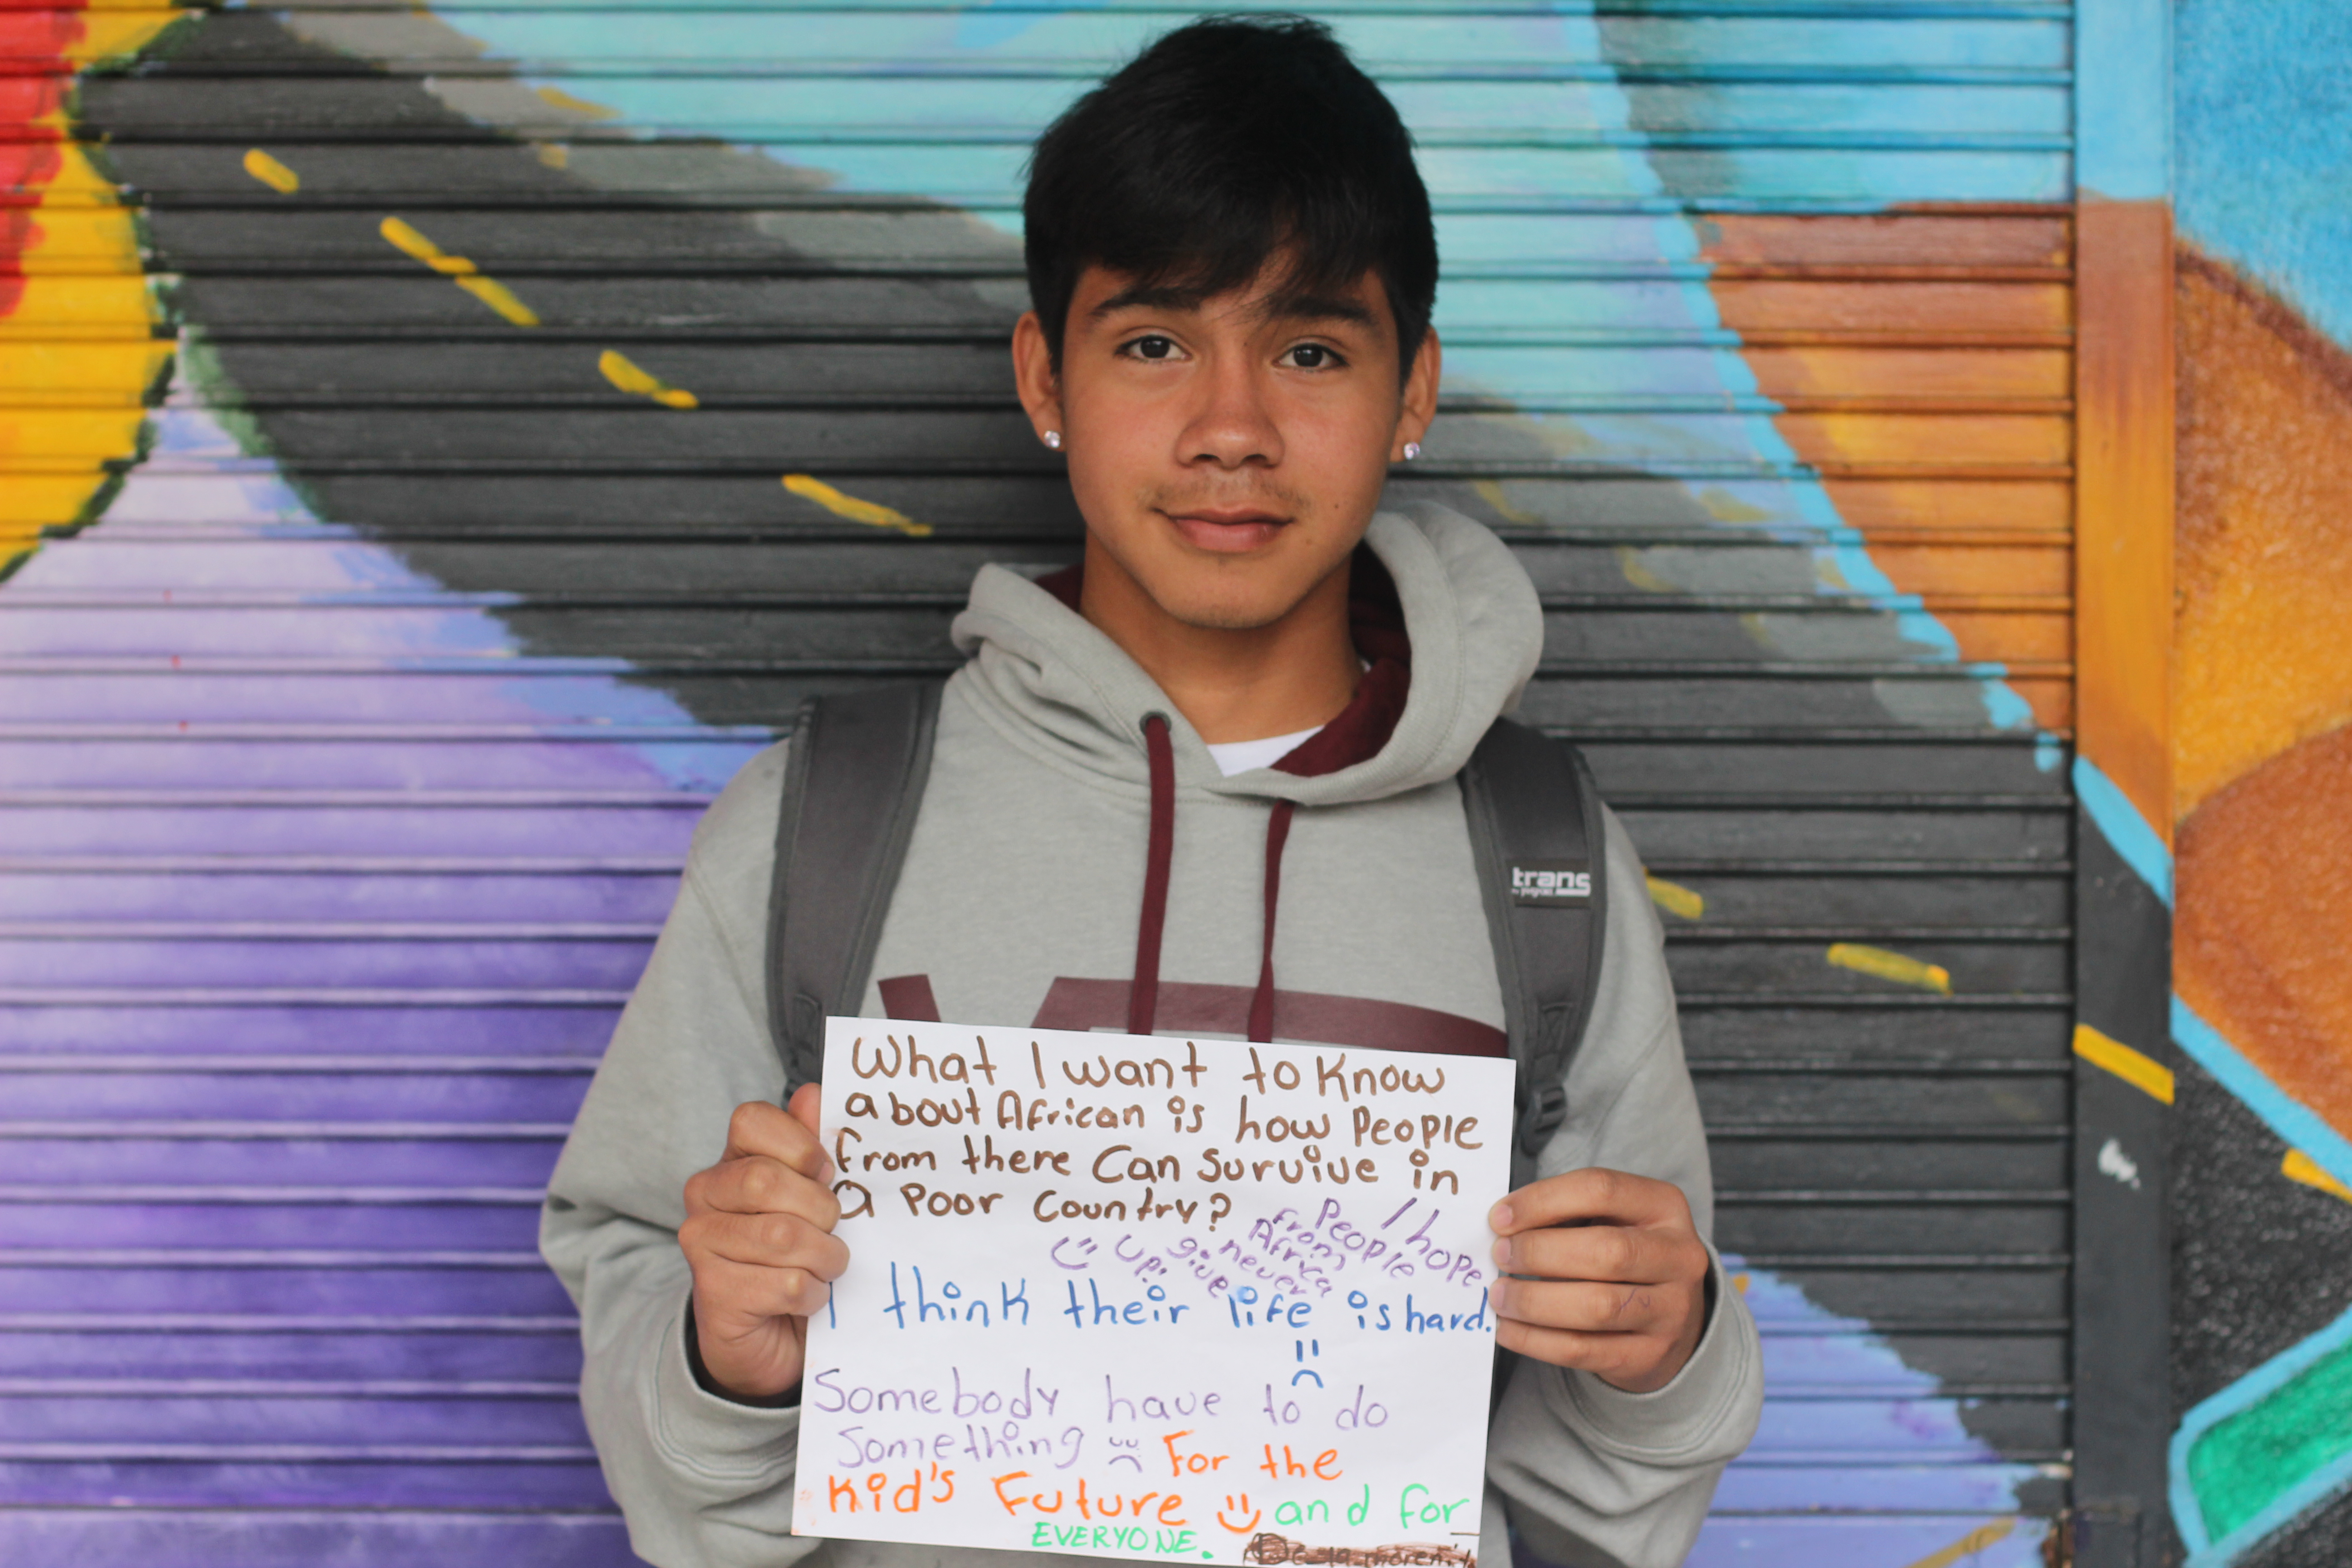 trans
What I want to Know
about African is how People
from there Can Survive in
a Poor Country?
I hope
People
from
Africa
never
give
up!
I think their life is hard.
Somebody have to do
Something For the
Kid's Future and for
EVERYONE.